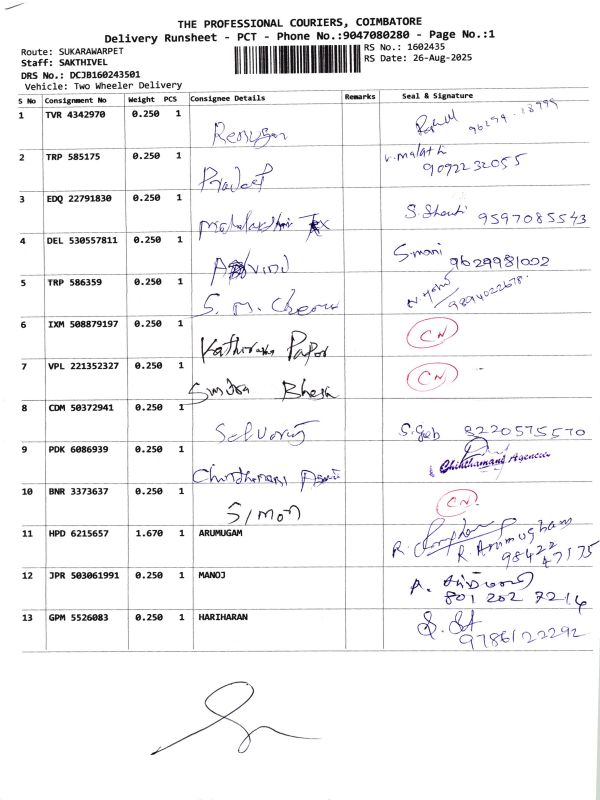 THE PROFESSIONAL COURIERS, COIMBATORE
Delivery Runsheet - PCT - Phone No.:9047080280 - Page No.:1
Route: SUKARAWARPET
RS No.: 1602435
Staff: SAKTHIVEL
RS Date: 26-Aug-2025
DRS No.: DCJB160243501
Vehicle: Two Wheeler Delivery
S No Consignment No Weight PCS Consignee Details Remarks Seal & Signature
1 TVR 4342970 0.250 1
2 TRP 585175 0.250 1 Pradeep V. Malathi 9092232055
3 EDQ 22791830 0.250 1 Mahalakshmi Tex S. Shanti 9597085543
4 DEL 530557811 0.250 1 Arvind S.mani 9629981002
5 TRP 586359 0.250 1 S. M. 9894022678
6 IXM 508879197 0.250 1 Kathiravan Paper CN
7 VPL 221352327 0.250 1 CN
8 CDM 50372941 0.250 1 Selvaraj 8220575570
9 PDK 6086939 0.250 1 Chinthamani Agencies
10 BNR 3373637 0.250 1 Simon CN
11 HPD 6215657 1.670 1 ARUMUGAM R. Arumugham 98422 47175
12 JPR 503061991 0.250 1 MANOJ A. 801 202 7214
13 GPM 5526083 0.250 1 HARIHARAN 9786122292